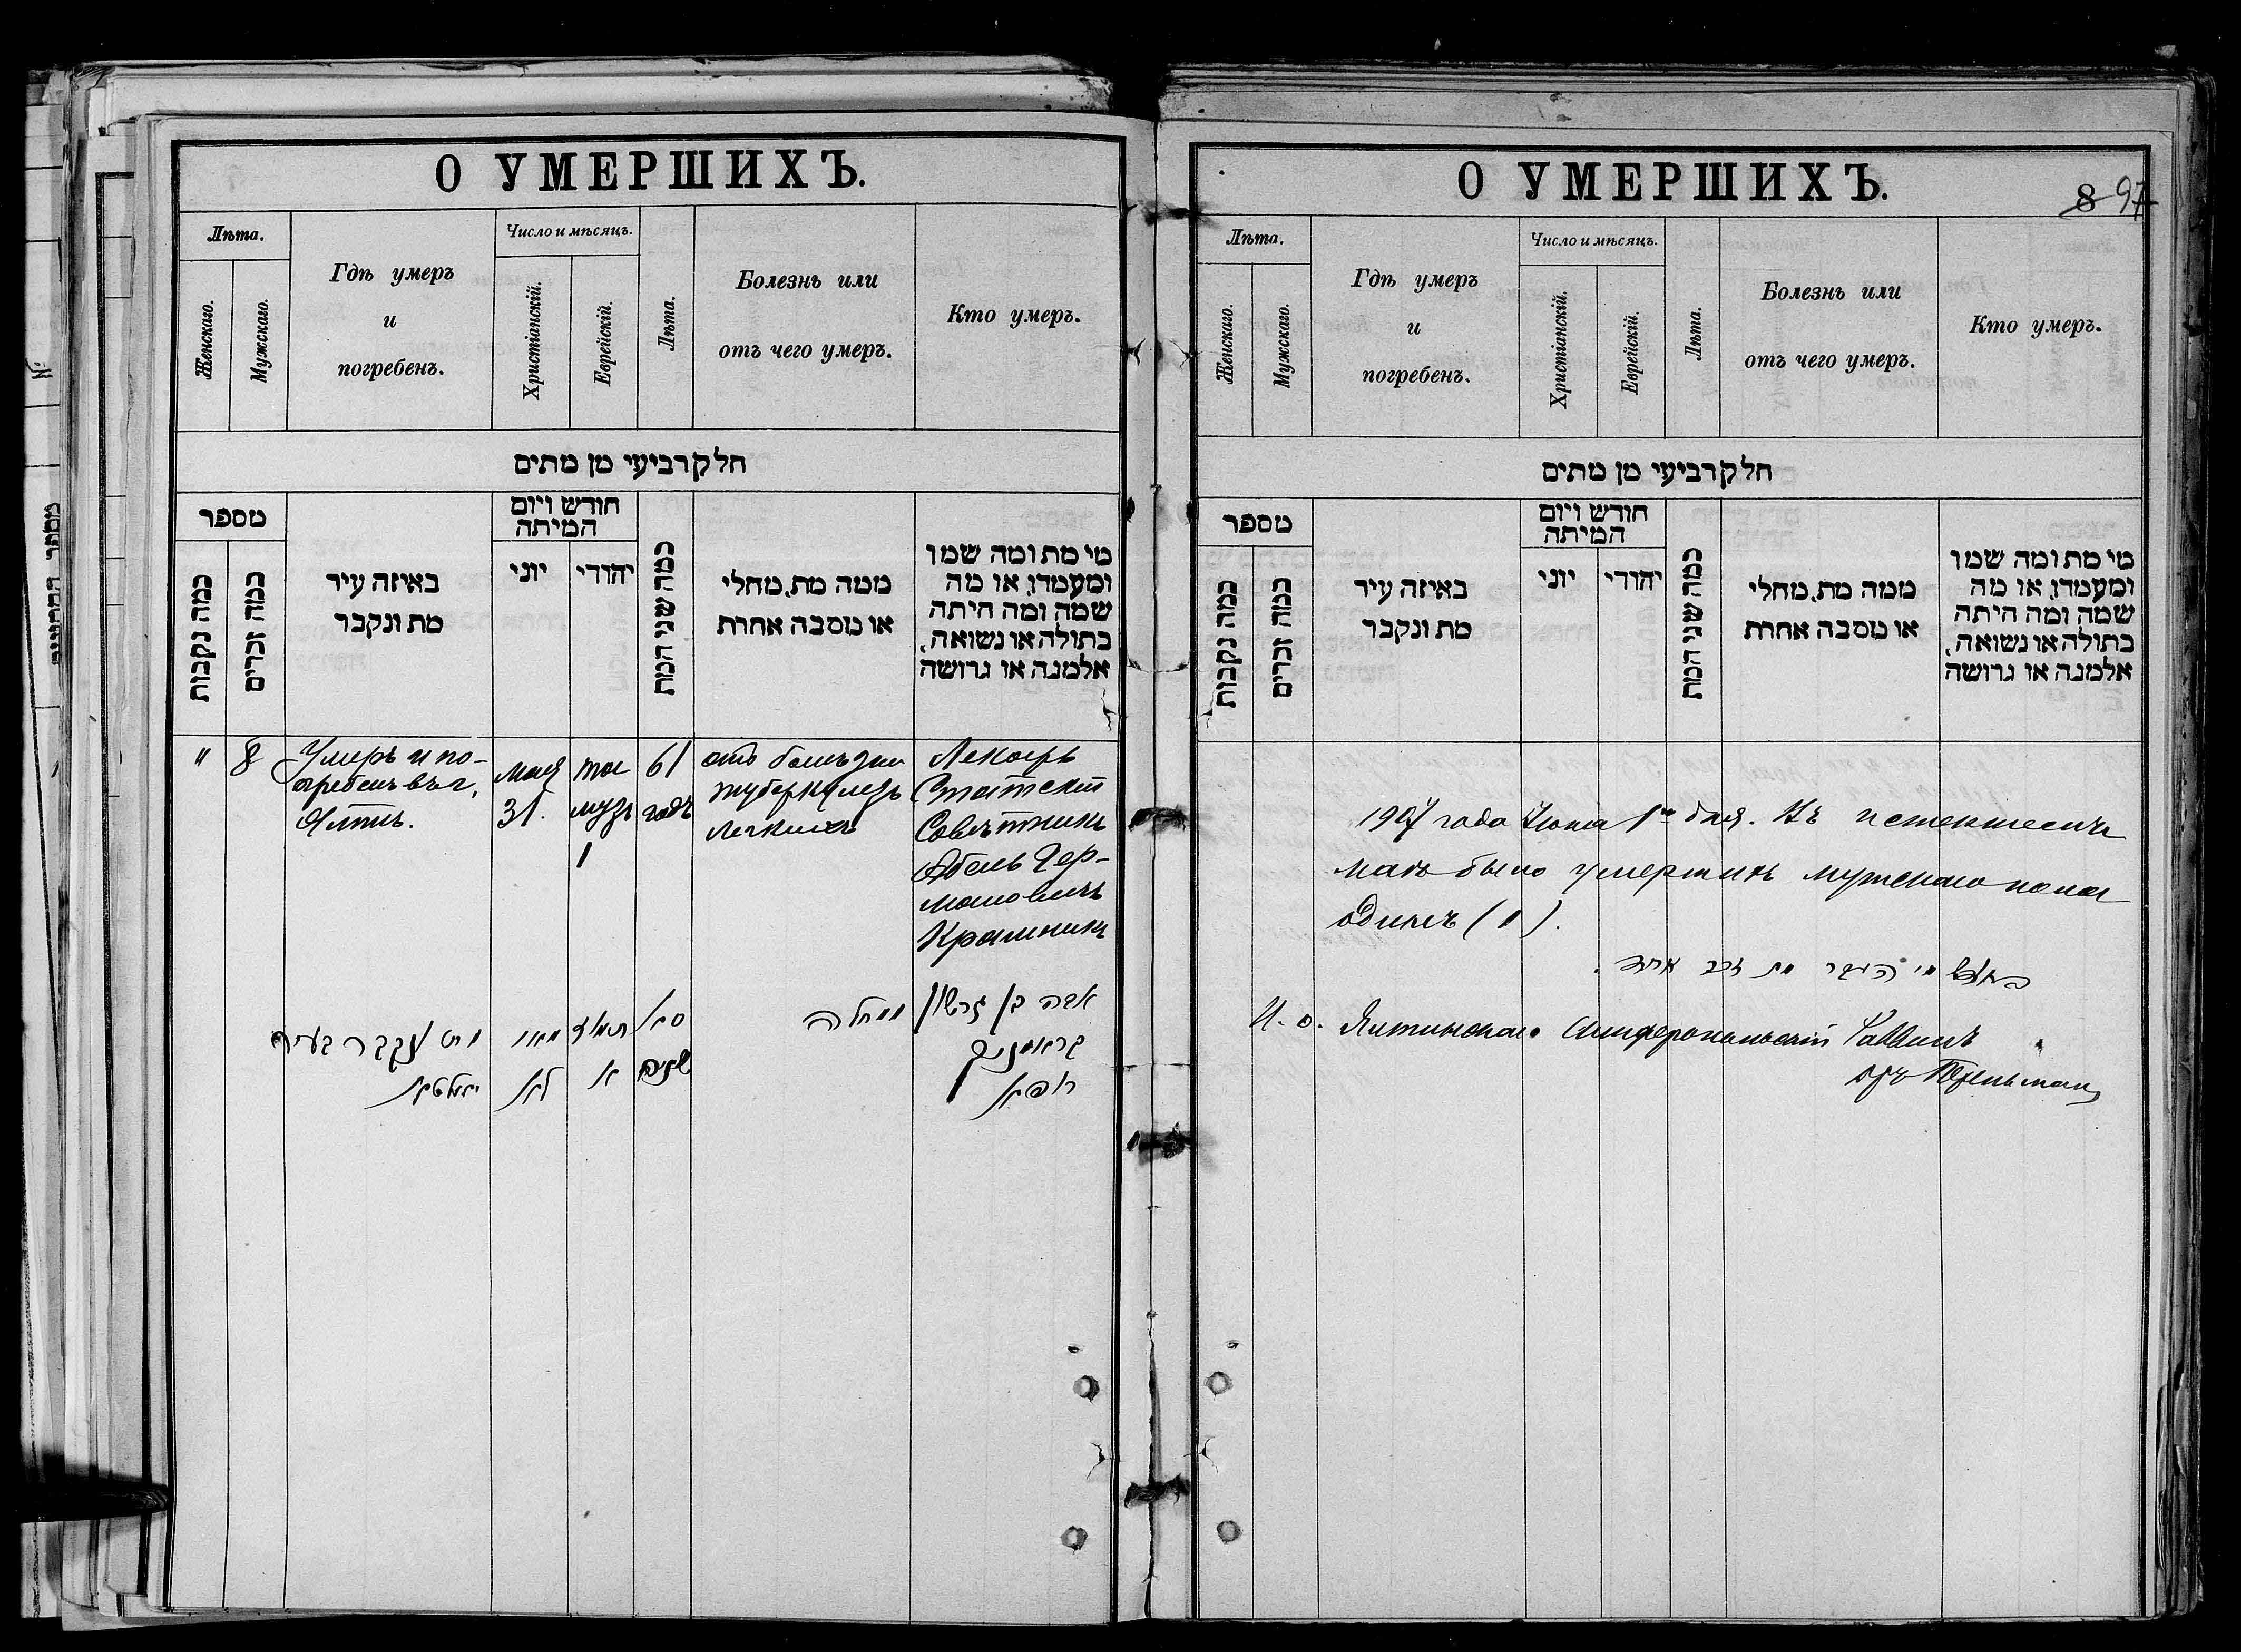 О УМЕРШИХЪ.
Лѣта.
Женскаго.
Мужскаго.
Гдѣ умеръ
и
погребенъ.
Число и мѣсяцъ.
Христіанскій.
Еврейскій.
Лѣта.
Болезнь или
отъ чего умеръ.
Кто умеръ.
חלק רביעי מן מתים
מספר
כמה נקבות
כמה זכרים
באיזה עיר
מת ונקבר
חודש ויום
המיתה
יוני
יהודי
כמה שני המת
ממה מת, מחלי
או מסבה אחרת
מי מת ומה שמו
ומעמדו, או מה
שמה ומה היתה
בתולה או נשואה,
אלמנה או גרושה
"
8
Умеръ и по-
гребенъ въ г.
Ялтѣ.
мая
31.
та
музъ
1
61
годъ
отъ болѣзни
туберкулезъ
легкихъ
Лекарь
Статскій
Совѣтникъ
Абель Гер-
мановичъ
Крамникъ
מת ונקבר בעיר
יאלטא
מאי
לא
תמוז
א
סא
שנים
ממחלה
בן גרשון
קראמניק
רופא
О УМЕРШИХЪ.
8 97
Лѣта.
Женскаго.
Мужскаго.
Гдѣ умеръ
и
погребенъ.
Число и мѣсяцъ.
Христіанскій.
Еврейскій.
Лѣта.
Болезнь или
отъ чего умеръ.
Кто умеръ.
חלק רביעי מן מתים
מספר
כמה נקבות
כמה זכרים
באיזה עיר
מת ונקבר
חודש ויום
המיתה
יוני
יהודי
כמה שני המת
ממה מת, מחלי
או מסבה אחרת
מי מת ומה שמו
ומעמדו, או מה
שמה ומה היתה
בתולה או נשואה,
אלמנה או גרושה
1907 года Іюня 1го дня. Въ истекшемъ
маѣ было умершихъ мужскаго пола
одинъ (1).
מאי העבר מת זכר אחד.
И. о. Ялтинскаго Симферопольскій Раввинъ
№
מספר